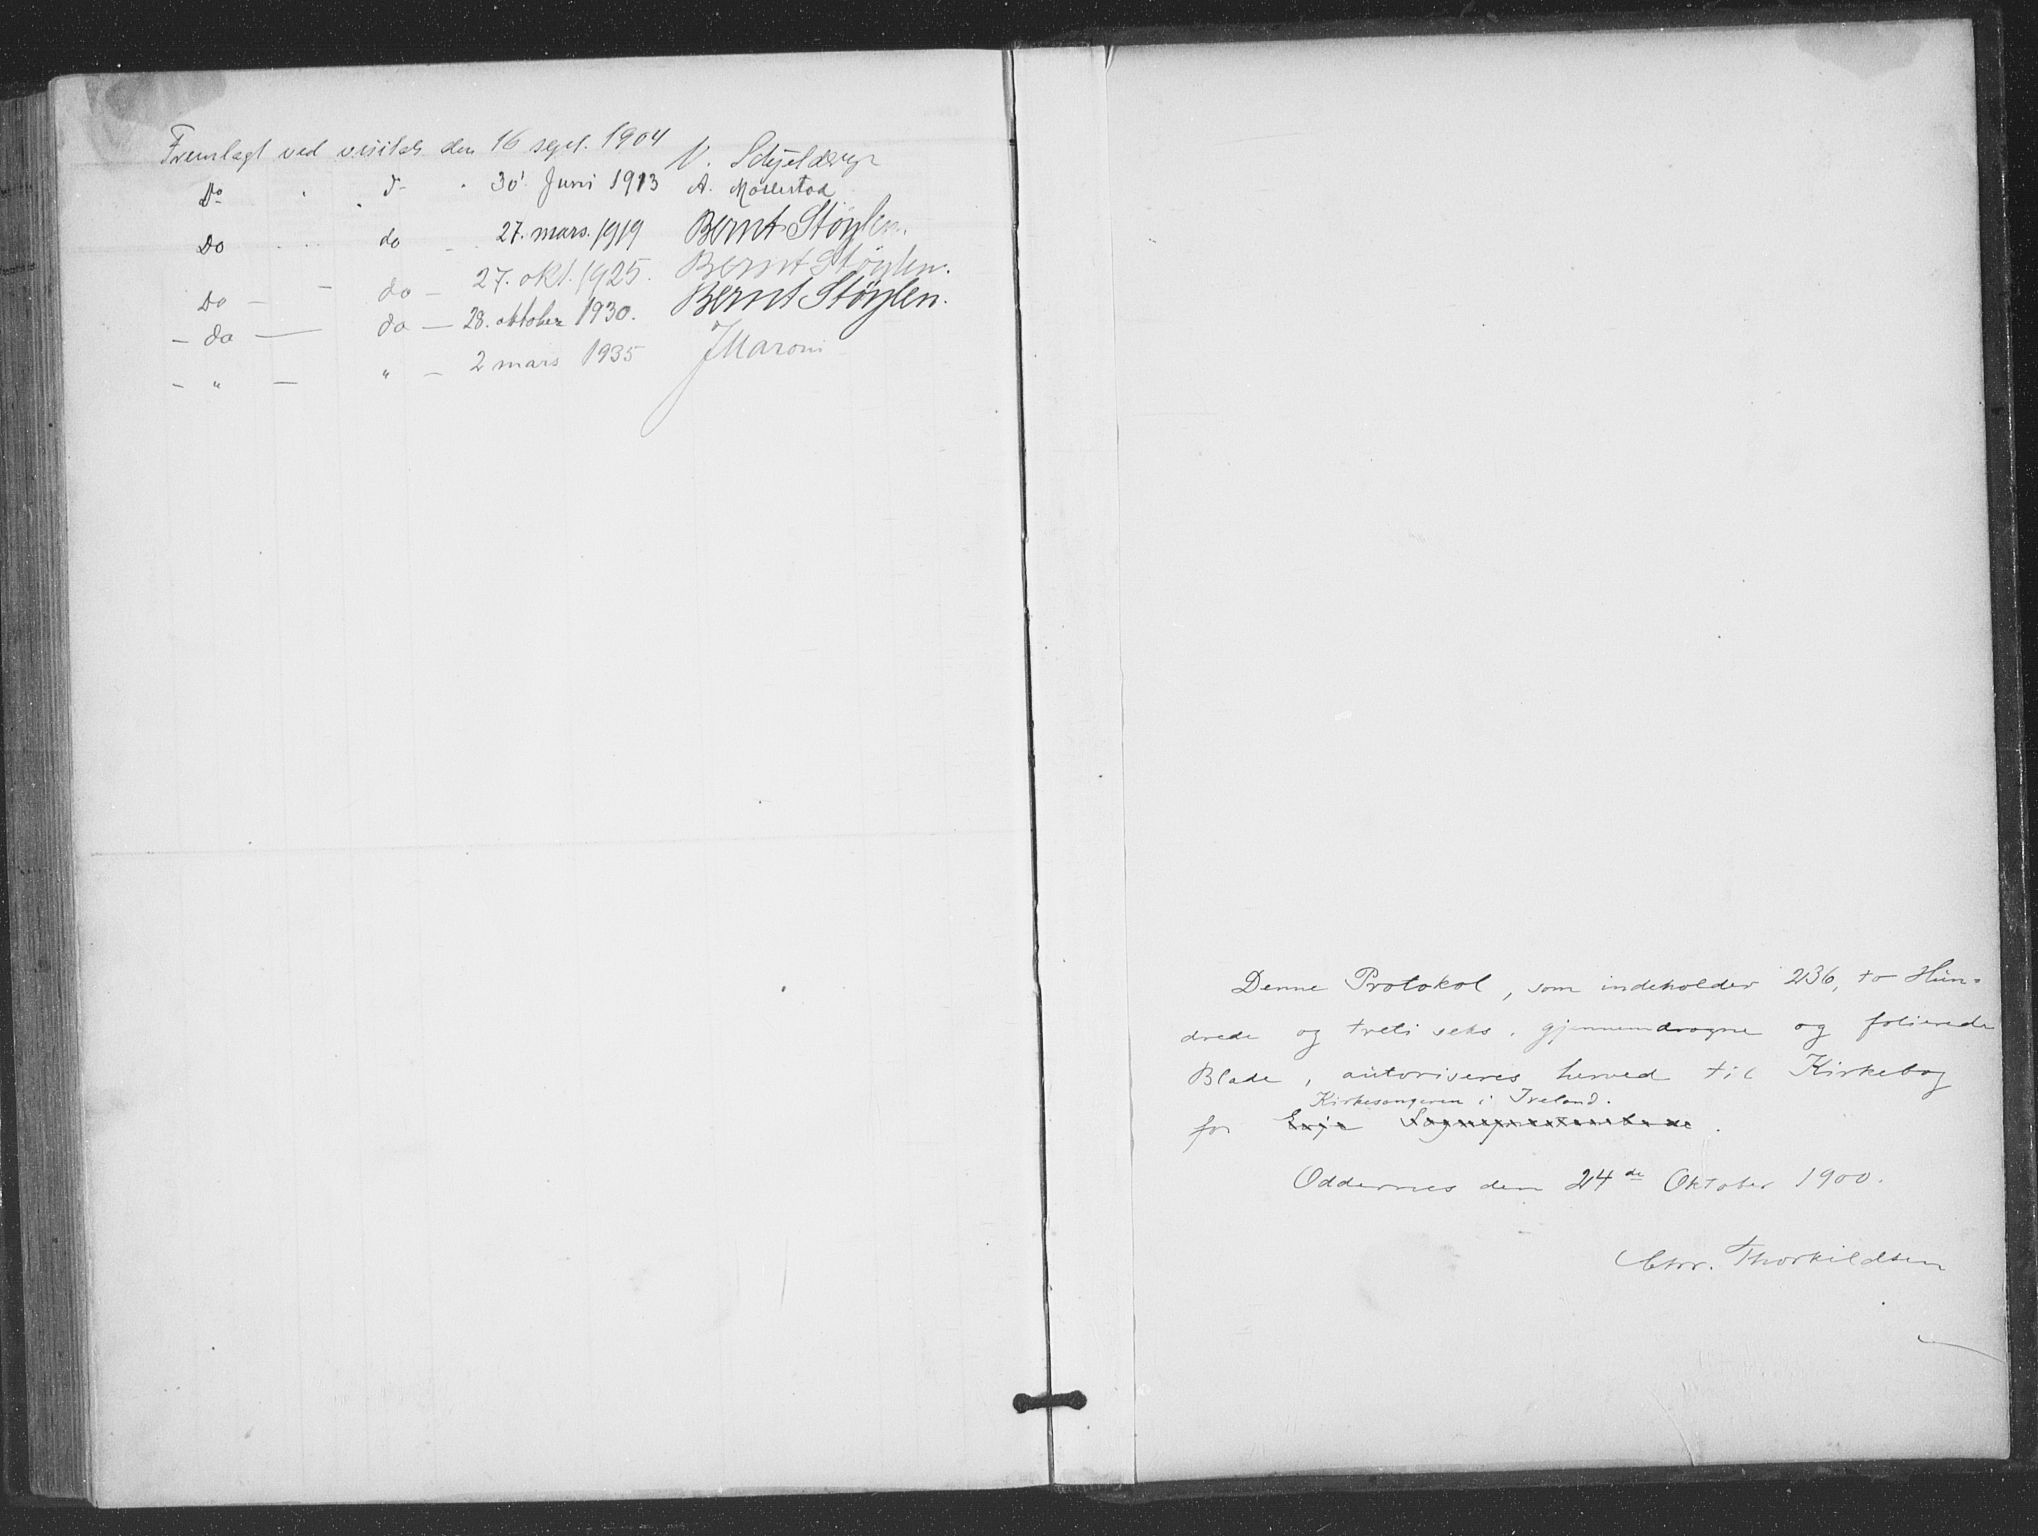 Fremlagt ved visitats den 16 sept. 1904 V. Schjelderup
Do " d- " 30' Juni 1913 A. Mollestad
Do " do - 27. mars. 1919 Bernt Støylen.
Do - - do - 27. okt. 1925. Bernt Støylen.
- do - do - 28. oktober 1930. Bernt Støylen.
- " - " - 2 mars 1935 JMaroni
Denne Protokol, som indeholder 236, to Hun-
drede og treti seks, gjennemdragne og folierede
Blade, autoriseres herved til Kirkebog
Kirkesangeren i Iveland.
for Evje Sognepræstembede.
Oddernes den 24de Oktober 1900.
Chr. Thorkildsen